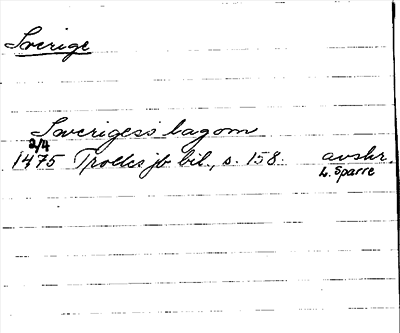 Sverige
Sverigess lagom
2/4
1475 Trolles jb bil., s. 158. avskr.
L. Sparre